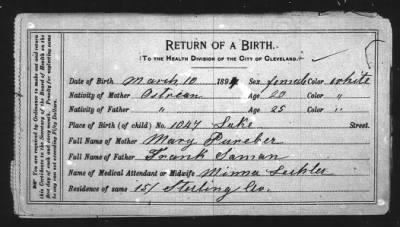 RETURN OF A BIRTH.
TO THE HEALTH DIVISION OF THE CITY OF CLEVELAND.
Date of Birth March 10 1894 Sex female Color white
Nativity of Mother Age 20 Color "
Nativity of Father " Age 25 Color "
Place of Birth (of child) No. 1047 Lake Street.
Full Name of Mother Mary
Full Name of Father Frank Saman
Name of Medical Attendant or Midwife Minna
Residence of same 151 Sterling Av.
You are required by Ordinance to make out and return
this Certificate to the Secretary of the Board of Health on the
first day of each and every month. Penalty for neglecting same